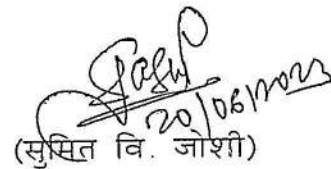 20/06/2023
(सुमित वि. जोशी)